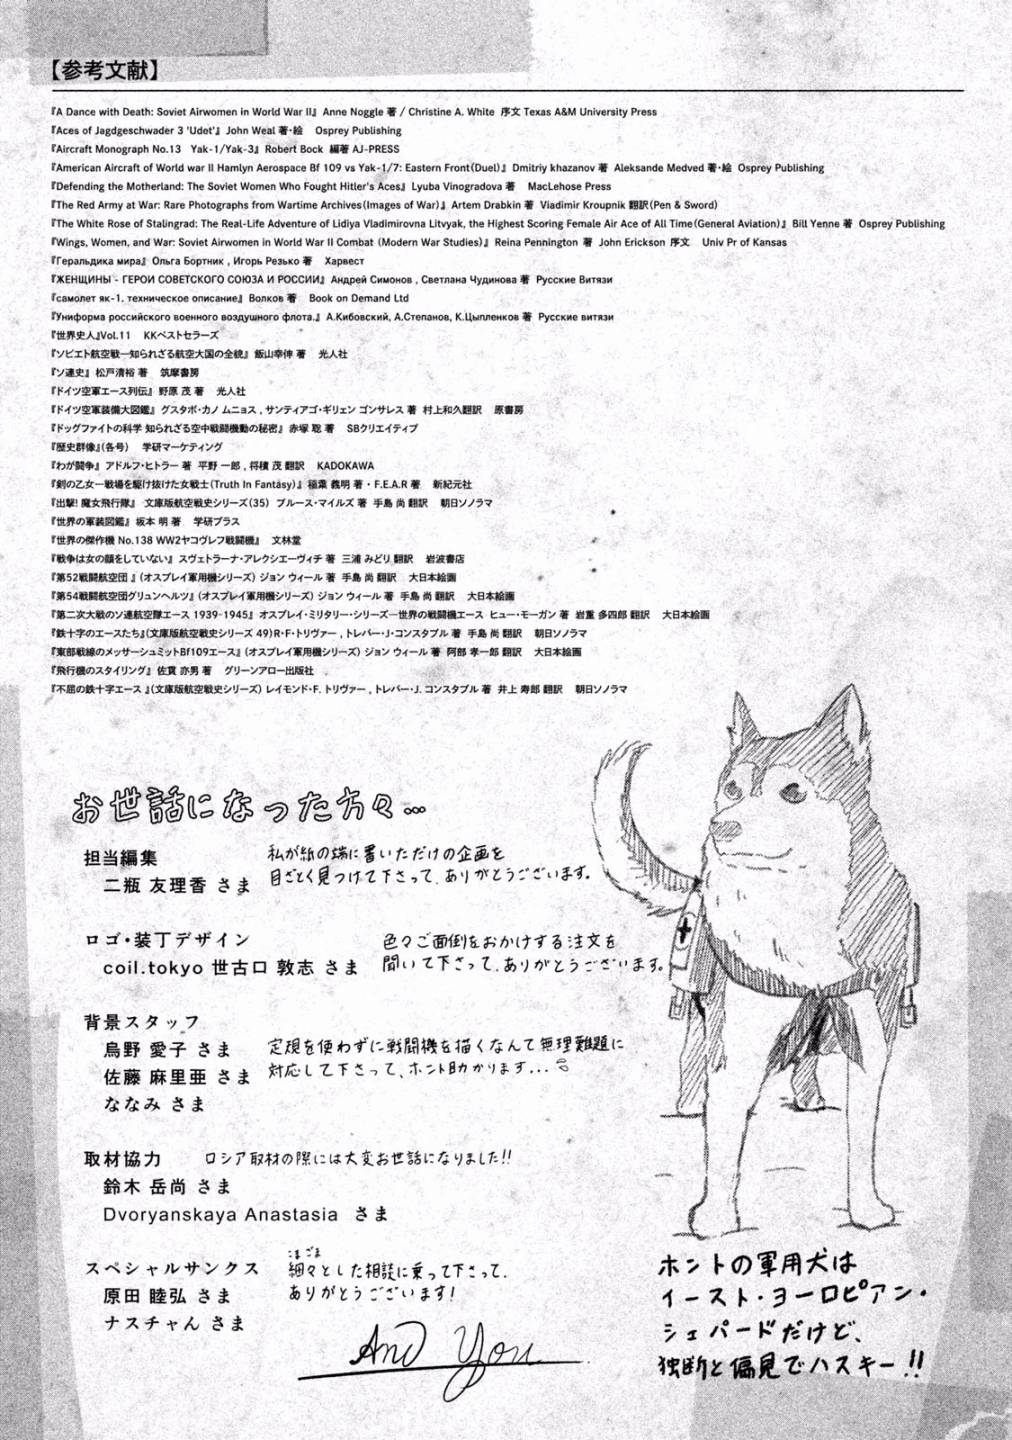 【参考文献】
『A Dance with Death: Soviet Airwomen in World War II』 Anne Noggle 著 / Christine A. White 序文 Texas A&M University Press
『Aces of Jagdgeschwader 3 'Udet'』 John Weal 著・絵 Osprey Publishing
『Aircraft Monograph No.13 Yak-1/Yak-3』 Robert Bock 編著 AJ-PRESS
『American Aircraft of World war II Hamlyn Aerospace Bf 109 vs Yak-1/7: Eastern Front(Duel)』 Dmitriy khazanov 著 Aleksande Medved 著・絵 Osprey Publishing
『Defending the Motherland: The Soviet Women Who Fought Hitler's Aces』 Lyuba Vinogradova 著 MacLehose Press
『The Red Army at War: Rare Photographs from Wartime Archives(Images of War)』 Artem Drabkin 著 Viadimir Kroupnik 翻訳(Pen & Sword)
『The White Rose of Stalingrad: The Real-Life Adventure of Lidiya Vladimirovna Litvyak, the Highest Scoring Female Air Ace of All Time(General Aviation)』 Bill Yenne 著 Osprey Publishing
『Wings, Women, and War: Soviet Airwomen in World War II Combat (Modern War Studies)』 Reina Pennington 著 John Erickson 序文 Univ Pr of Kansas
『Геральдика мира』 Ольга Бортник , Игорь Резько 著 Харвест
『ЖЕНЩИНЫ - ГЕРОИ СОВЕТСКОГО СОЮЗА И РОССИИ』 Андрей Симонов , Светлана Чудинова 著 Русские Витязи
『самолет як-1. техническое описание』 Волков 著 Book on Demand Ltd
『Униформа российского военного воздушного флота.』 А.Кибовский, А.Степанов, К.Цыпленков 著 Русские витязи
『世界史人』Vol.11 KKベストセラーズ
『ソビエト航空戦―知られざる航空大国の全貌』 飯山幸伸 著 光人社
『ソ連史』 松戸清裕 著 筑摩書房
『ドイツ空軍エース列伝』 野原 茂 著 光人社
『ドイツ空軍装備大図鑑』 グスタボ・カノ ムニョス , サンティアゴ・ギリェン ゴンサレス 著 村上和久翻訳 原書房
『ドッグファイトの科学 知られざる空中戦闘機動の秘密』 赤塚 聡 著 SBクリエイティブ
『歴史群像』(各号) 学研マーケティング
『わが闘争』 アドルフ・ヒトラー 著 平野 一郎 , 将積 茂 翻訳 KADOKAWA
『剣の乙女―戦場を駆け抜けた女戦士(Truth In Fantasy)』 稲葉 義明 著 ・ F.E.A.R 著 新紀元社
『出撃! 魔女飛行隊』 文庫版航空戦史シリーズ(35) ブルース・マイルズ 著 手島 尚 翻訳 朝日ソノラマ
『世界の軍装図鑑』 坂本 明 著 学研プラス
『世界の傑作機 No.138 WW2ヤコヴレフ戦闘機』 文林堂
『戦争は女の顔をしていない』 スヴェトラーナ・アレクシエーヴィチ 著 三浦 みどり 翻訳 岩波書店
『第52戦闘航空団 』(オスプレイ軍用機シリーズ) ジョン ウィール 著 手島 尚 翻訳 大日本絵画
『第54戦闘航空団グリュンヘルツ』(オスプレイ軍用機シリーズ) ジョン ウィール 著 手島 尚 翻訳 大日本絵画
『第二次大戦のソ連航空隊エース 1939-1945』 オスプレイ・ミリタリー・シリーズ―世界の戦闘機エース ヒュー・モーガン 著 岩重 多四郎 翻訳 大日本絵画
『鉄十字のエースたち』(文庫版航空戦史シリーズ 49)R・F・トリヴァー , トレバー・J・コンスタブル 著 手島 尚 翻訳 朝日ソノラマ
『東部戦線のメッサーシュミットBf109エース』(オスプレイ軍用機シリーズ) ジョン ウィール 著 阿部 孝一郎 翻訳 大日本絵画
『飛行機のスタイリング』 佐貫 亦男 著 グリーンアロー出版社
『不屈の鉄十字エース 』(文庫版航空戦史シリーズ) レイモンド・F. トリヴァー , トレバー・J. コンスタブル 著 井上 寿郎 翻訳 朝日ソノラマ
お世話になった方々…
担当編集
二瓶 友理香 さま
私が紙の端に書いただけの企画を
目ざとく見つけて下さって、ありがとうございます。
ロゴ・装丁デザイン
coil.tokyo 世古口 敦志 さま
色々ご面倒をおかけする注文を
聞いて下さって、ありがとうございます。
背景スタッフ
烏野 愛子 さま
佐藤 麻里亜 さま
ななみ さま
定規を使わずに戦闘機を描くなんて無理難題に
対応して下さって、ホント助かります...
取材協力
ロシア取材の際には大変お世話になりました!!
鈴木 岳尚 さま
Dvoryanskaya Anastasia さま
スペシャルサンクス
原田 睦弘 さま
ナスチャん さま
こまごま
細々とした相談に乗って下さって、
ありがとうございます!
And You
ホントの軍用犬は
イースト・ヨーロピアン・
シェパードだけど、
独断と偏見でハスキー!!